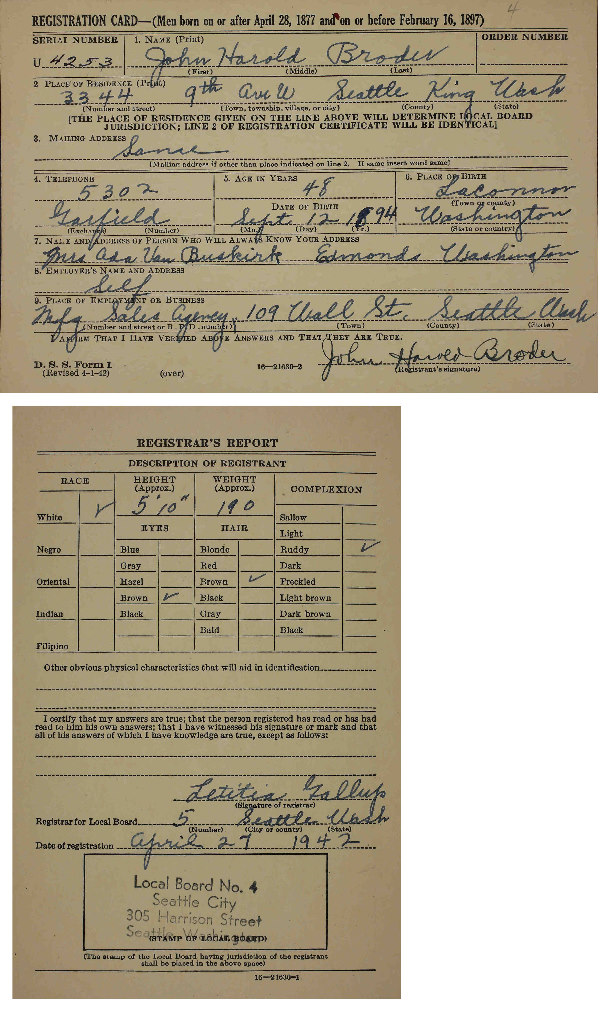 4
REGISTRATION CARD—(Men born on or after April 28, 1877 and on or before February 16, 1897)
SERIAL NUMBER 1. NAME (Print) ORDER NUMBER
U 4253 John Harold Broder
(First) (Middle) (Last)
2 PLACE OF RESIDENCE (Print)
3344 9th Ave W Seattle King Wash
(Number and street) (Town, township, village, or city) (County) (State)
[THE PLACE OF RESIDENCE GIVEN ON THE LINE ABOVE WILL DETERMINE LOCAL BOARD
JURISDICTION; LINE 2 OF REGISTRATION CERTIFICATE WILL BE IDENTICAL]
3. MAILING ADDRESS
Same
(Mailing address if other than place indicated on line 2. If same insert word same)
4. TELEPHONE 5. AGE IN YEARS 6. PLACE OF BIRTH
5302 48 LaConnor
DATE OF BIRTH (Town or county)
Garfield Sept. 12 1894 Washington
(Exchange) (Number) (Mo.) (Day) (Yr.) (State or country)
7. NAME AND ADDRESS OF PERSON WHO WILL ALWAYS KNOW YOUR ADDRESS
Mrs Ada Van Buskirk Edmonds Washington
8. EMPLOYER'S NAME AND ADDRESS
Self
9. PLACE OF EMPLOYMENT OR BUSINESS
Mfg Sales Agency 109 Wall St. Seattle Wash
(Number and street or R. F. D. number) (Town) (County) (State)
I AFFIRM THAT I HAVE VERIFIED ABOVE ANSWERS AND THAT THEY ARE TRUE.
John Harold Broder
D. S. S. Form 1 (Registrant's signature)
(Revised 4-1-42) (over) 16—21630-2
REGISTRAR'S REPORT
DESCRIPTION OF REGISTRANT
RACE HEIGHT (Approx.) WEIGHT (Approx.) COMPLEXION
5'10" 190
White ✓ Sallow
EYES HAIR Light
Negro Blue Blonde Ruddy ✓
Gray Red Dark
Oriental Hazel Brown ✓ Freckled
Brown ✓ Black Light brown
Indian Black Gray Dark brown
Bald Black
Filipino
Other obvious physical characteristics that will aid in identification
I certify that my answers are true; that the person registered has read or has had
read to him his own answers; that I have witnessed his signature or mark and that
all of his answers of which I have knowledge are true, except as follows:
Letitia Gallup
(Signature of registrar)
Registrar for Local Board 5 Seattle Wash
(Number) (City or county) (State)
Date of registration April 27 1942
Local Board No. 4
Seattle City
305 Harrison Street
Seattle, Washington
(STAMP OF LOCAL BOARD)
(The stamp of the Local Board having jurisdiction of the registrant
shall be placed in the above space)
16—21630-1